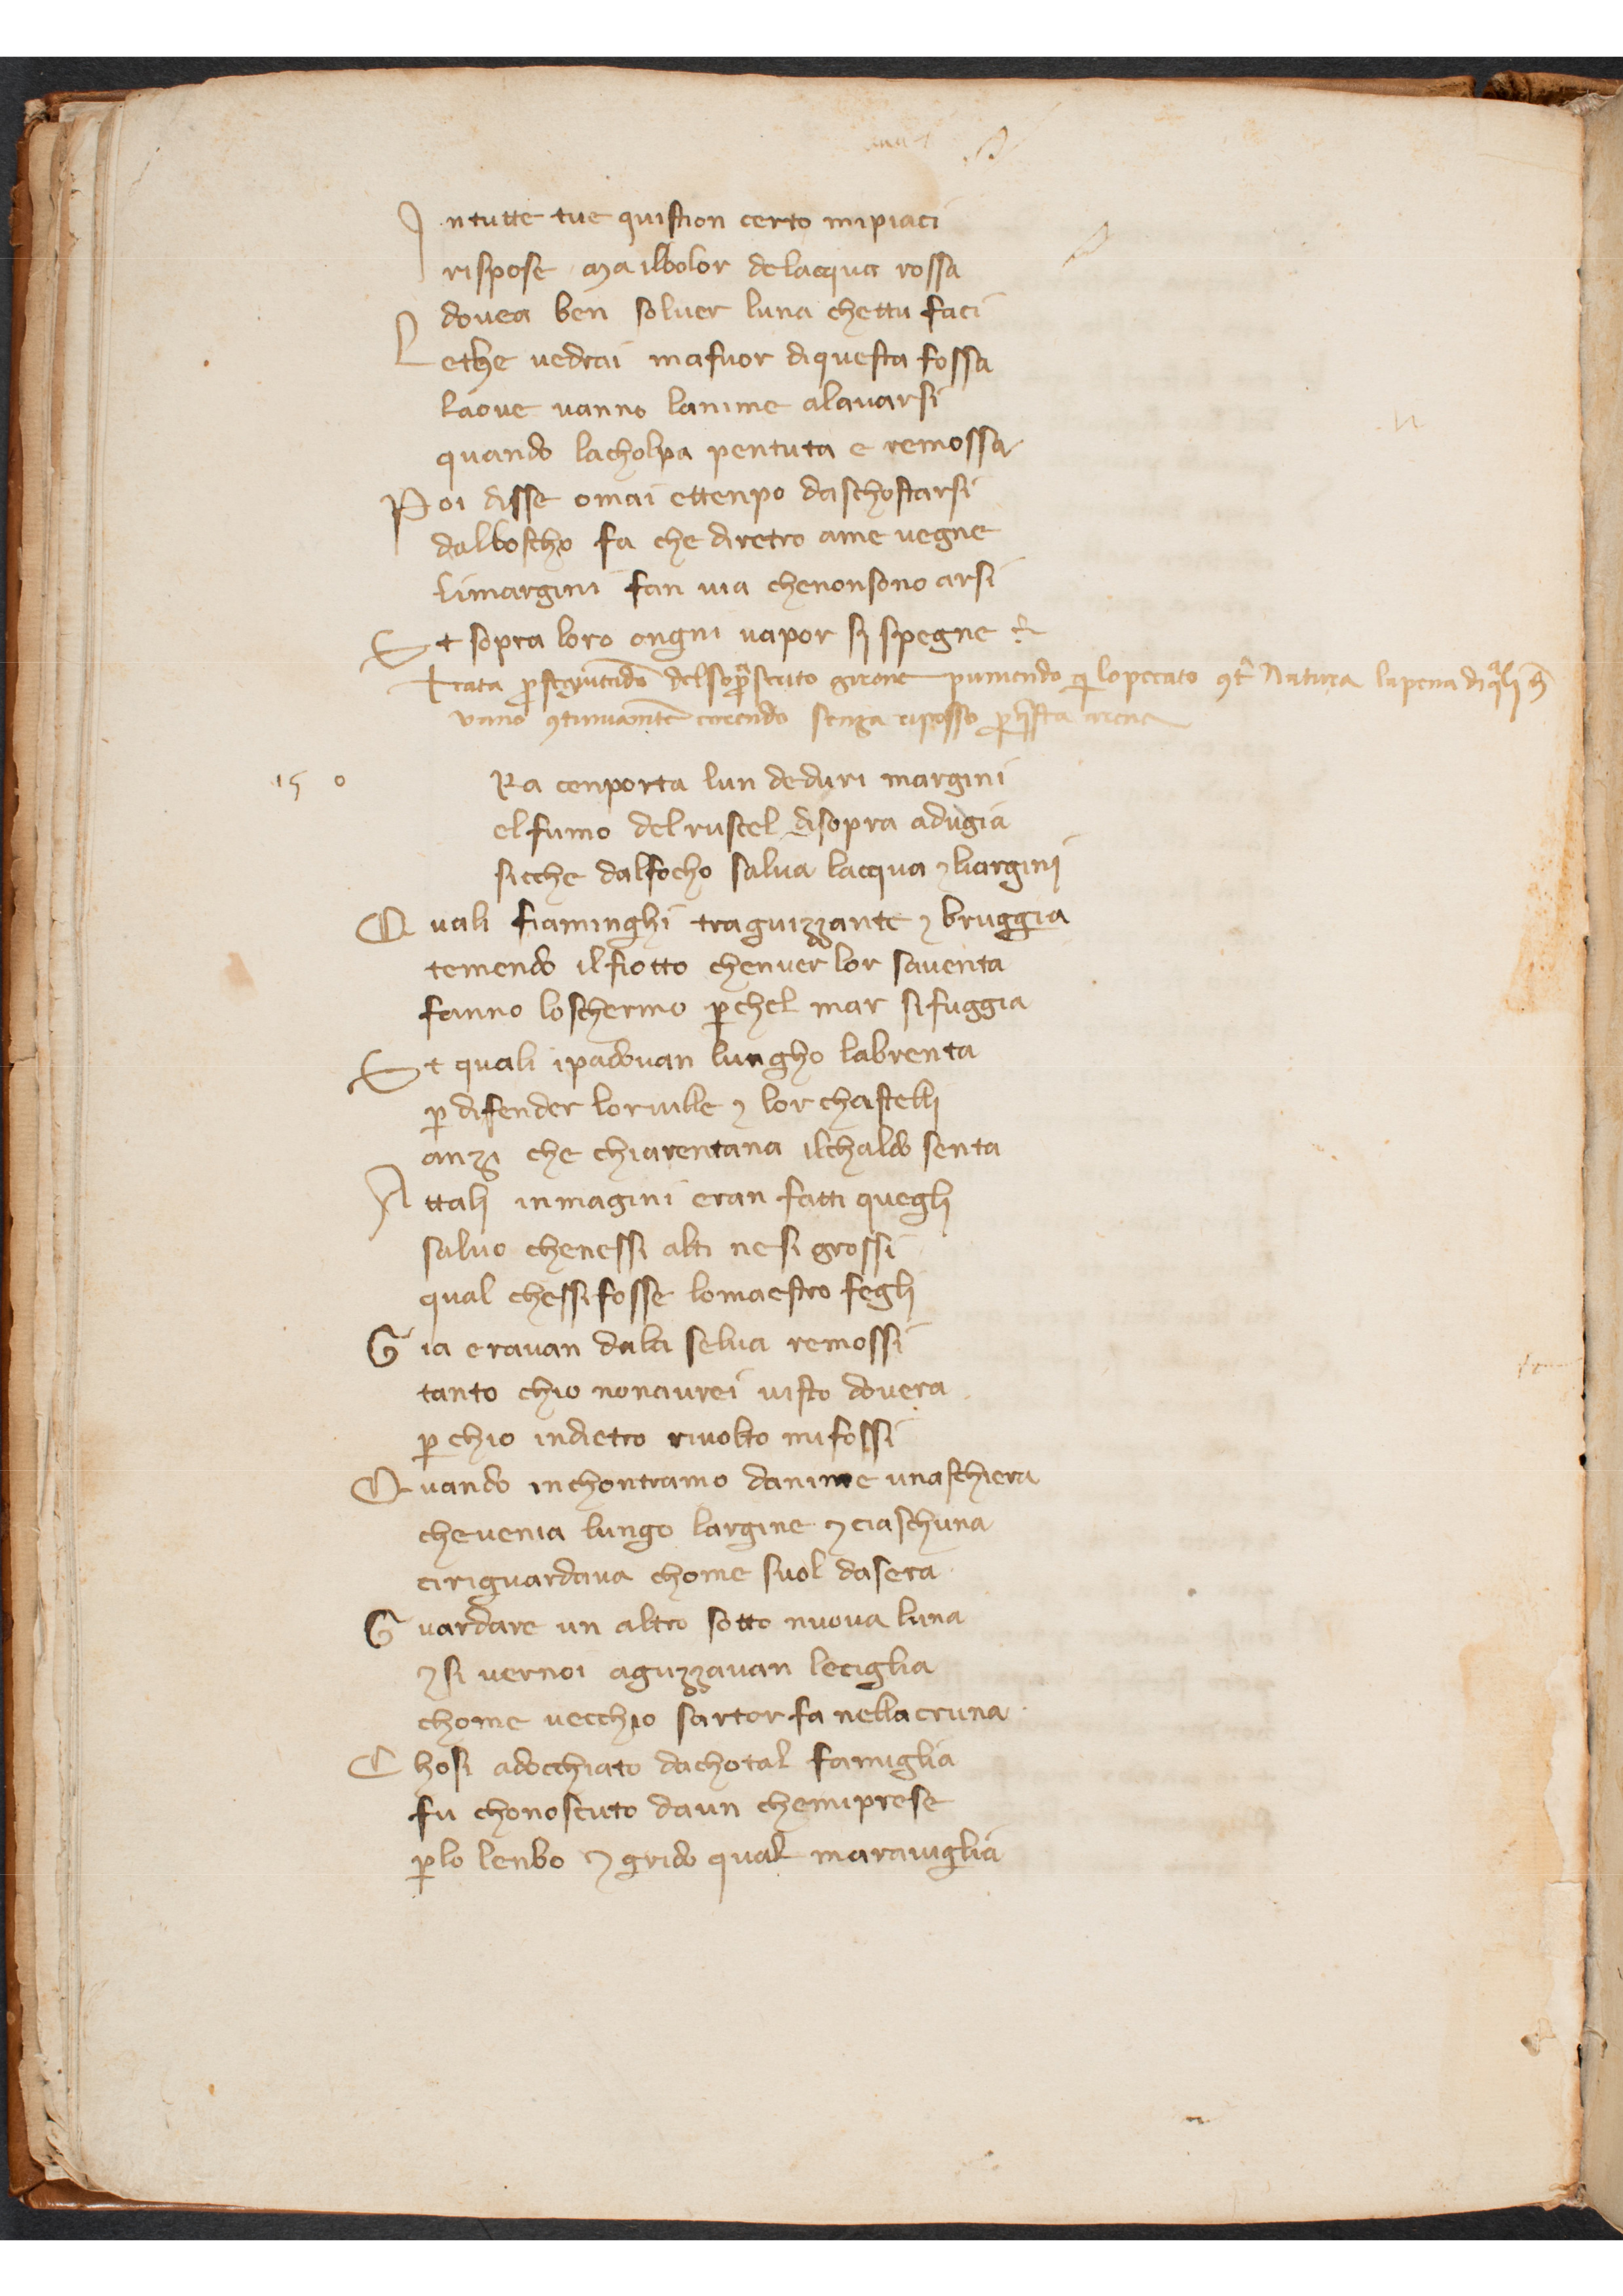 In tutte tue quistion certo mipiaci
rispose ma ilbolor delacqua rossa
dovea ben soluer luna chettu faci
Lethe vedrai mafuor diquesta fossa
laove vanno lanime alavarsi
quando lacholpa pentuta e remossa
Poi disse omai ettenpo daschostarsi
dalboscho fa che diretro ame vegne
limargini fan via chenonsono arsi
Et sopra loro ongni vapor si spegne
Trata girone puniendo lopecato Natura lapena
vano corendo senza riposso arena
15 o
Ra cenporta lun deduri margini
elfumo delruscel disopra adugia
sicche dalfocho salva lacqua ⁊ liargini
Quali fiaminghi traguizzante ⁊ bruggia
temendo ilfiotto chenver lor saventa
fanno loschermo perchel mar sifuggia
Et quali ipadovan lungho labrenta
per difender lorville ⁊ lor chastelli
anzi che chiarentana ilchaldo senta
Attali inmagini eran fatti quegli
salvo chenessi alti nesi grossi
qual chessifosse lomaestro fegli
Gia eravan dala selva remossi
tanto chio nonavrei visto dovera
perchio indietro rivolto mifossi
Quando inchontramo danime unaschiera
chevenia lungo largine ⁊ ciaschuna
ciriguardava chome suol dasera
Guardare un altro sotto nuova luna
⁊ si vernoi aguzzavan leciglia
chome vecchio sartor fa nellacruna
Chosi adocchiato dachotal famiglia
fu chonosciuto daun chemiprese
perlo lenbo ⁊ grido qual maraviglia